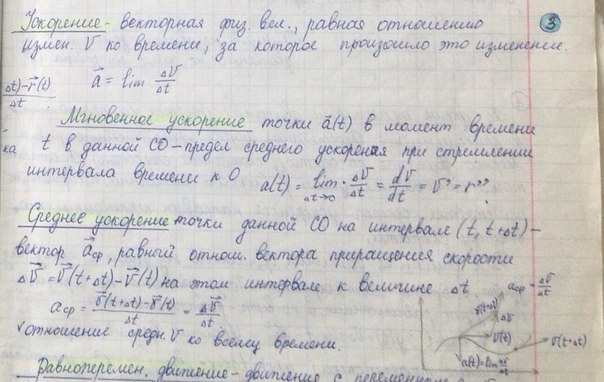 Ускорение - векторная физ. вел., равная отношению
3
измен. V ко времени, за которое произошло это изменение.
Δt)-r⃗(t)
Δt
a⃗ = lim Δv⃗/Δt
Мгновенное ускорение точки a⃗(t) в момент времени
ка t в данной СО - предел среднего ускорения при стремлении
интервала времени к 0 a(t) = lim Δt→0 Δv⃗/Δt = dv⃗/dt = v' = r''
Среднее ускорение точки данной СО на интервале (t, t+Δt) -
вектор a⃗ср, равный отнош. вектора приращения скорости
Δv⃗ = v⃗(t+Δt) - v⃗(t) на этом интервале к величине Δt
aср = v⃗(t+Δt)-v⃗(t)/Δt = Δv⃗/Δt
aср = Δv⃗/Δt
v(t+Δt)
Δv⃗
v⃗(t)
v(t+Δt)
a(t)=lim Δv/Δt
отношение средн. V ко всему времени.
Равноперемен. движение - движение с